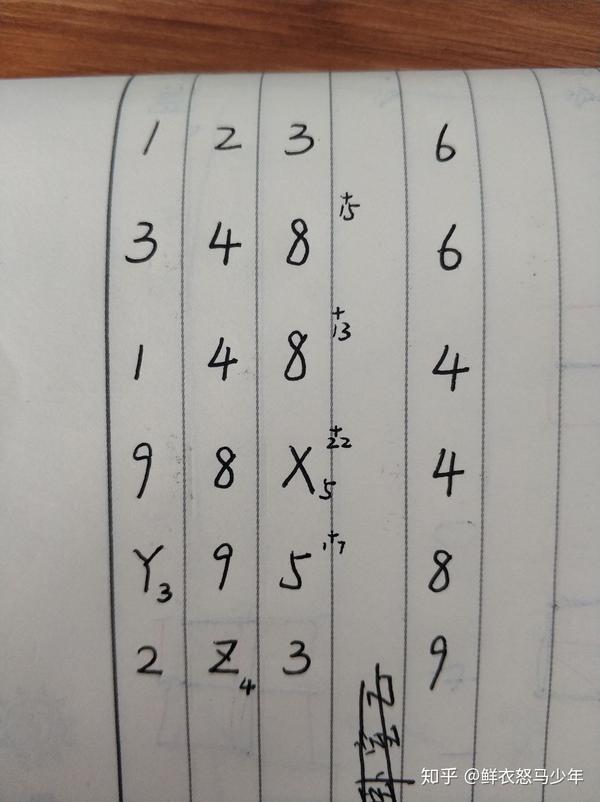 1 2 3 6
3 4 8 +15 6
1 4 8 +13 4
9 8 X5 +22 4
Y3 9 5 +17 8
2 Z4 3 9
知乎 @鲜衣怒马少年